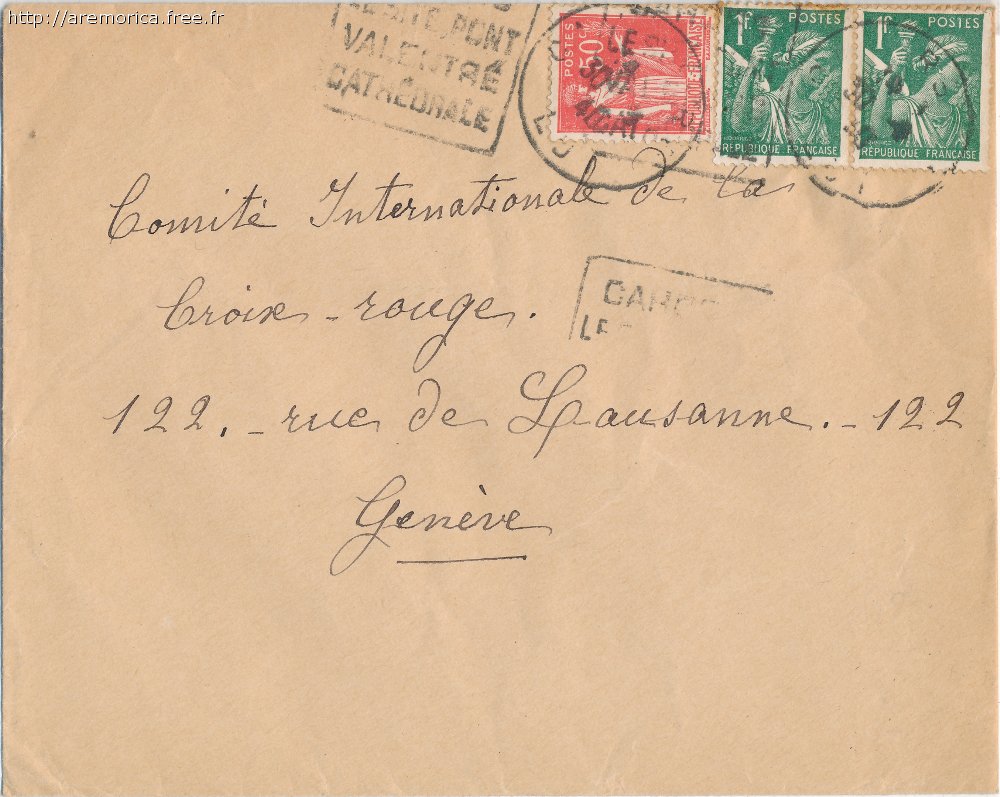 http://aremorica.free.fr
PONT
VALENTRÉ
CATHÉDRALE
POSTES
50
RÉPUBLIQUE FRANÇAISE
1F. POSTES
RÉPUBLIQUE FRANÇAISE
1F. POSTES
RÉPUBLIQUE FRANÇAISE
LOT
Comité Internationale de la
Croix-rouge.
CAHO
LE
122, - rue de Lausanne. - 122
Genève